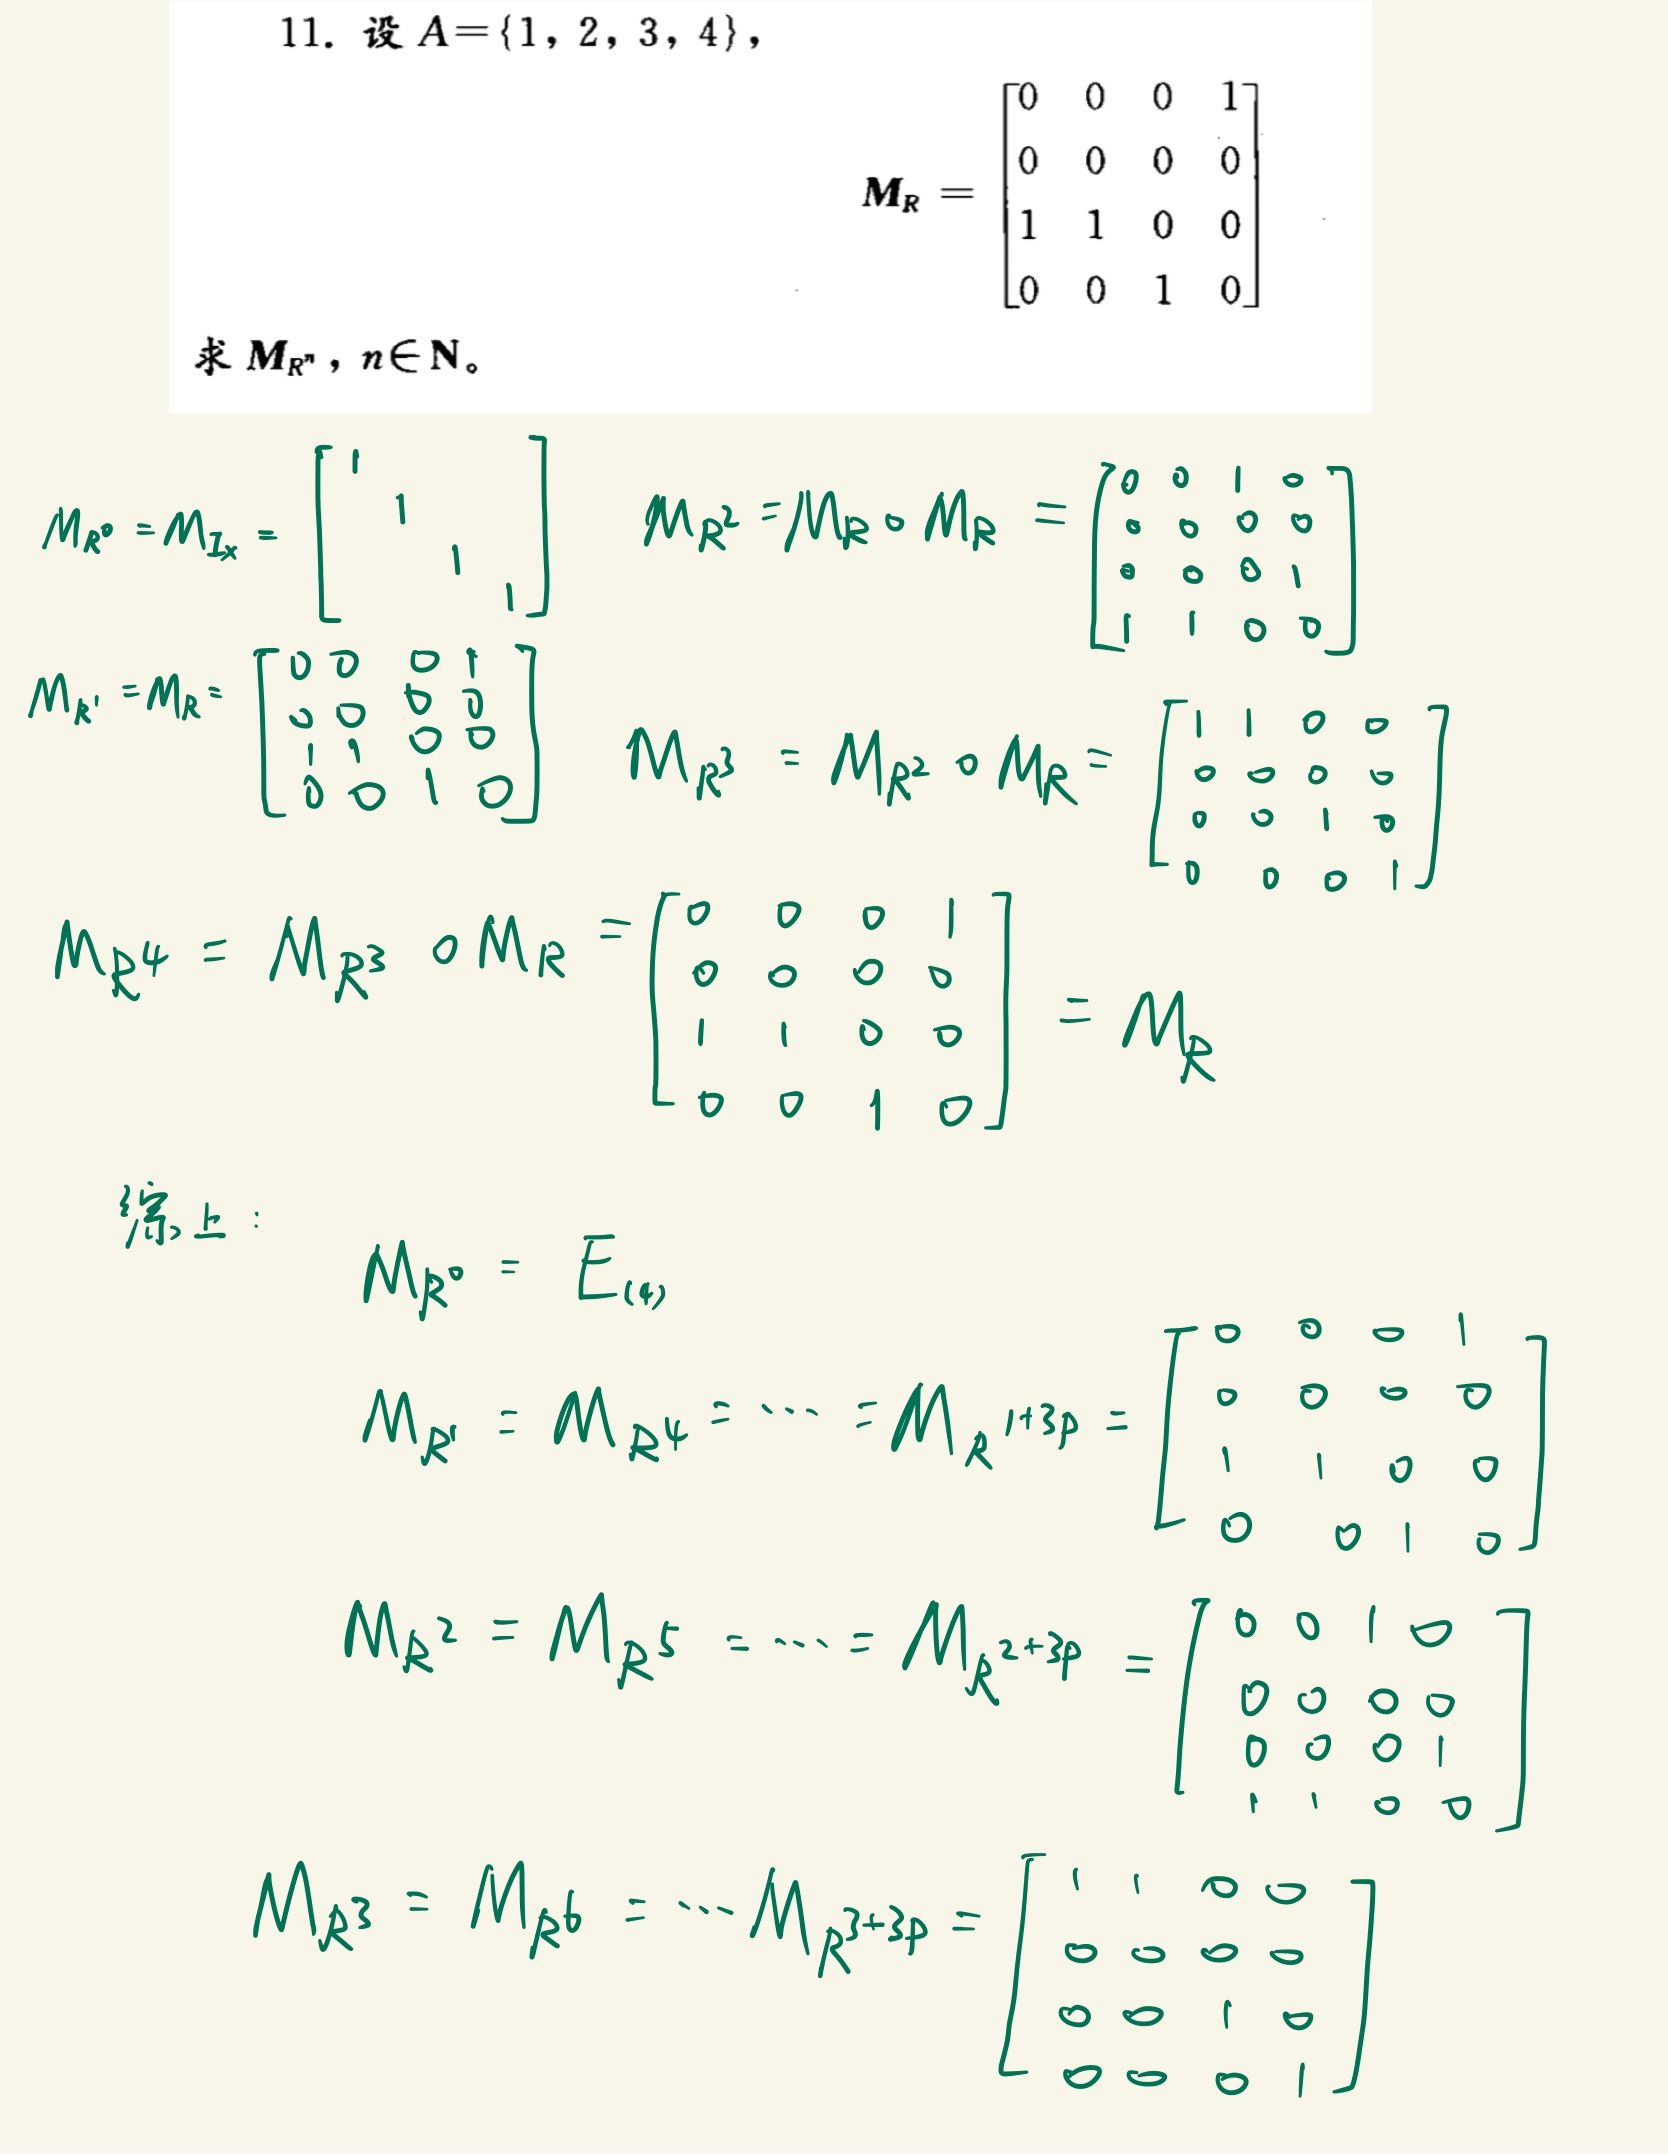 11. 设 A={1, 2, 3, 4},
M_R = [0 0 0 1
0 0 0 0
1 1 0 0
0 0 1 0]
求 M_{R^n}, n∈N。
M_{R^0} = M_{I_x} = [1
1
1
1]
M_{R^2} = M_R ∘ M_R = [0 0 1 0
0 0 0 0
0 0 0 1
1 1 0 0]
M_{R^1} = M_R = [0 0 0 1
0 0 0 0
1 1 0 0
0 0 1 0]
M_{R^3} = M_{R^2} ∘ M_R = [1 1 0 0
0 0 0 0
0 0 1 0
0 0 0 1]
M_{R^4} = M_{R^3} ∘ M_R = [0 0 0 1
0 0 0 0
1 1 0 0
0 0 1 0] = M_R
综上:
M_{R^0} = E_{(4)}
M_{R^1} = M_{R^4} = ... = M_{R^{1+3p}} = [0 0 0 1
0 0 0 0
1 1 0 0
0 0 1 0]
M_{R^2} = M_{R^5} = ... = M_{R^{2+3p}} = [0 0 1 0
0 0 0 0
0 0 0 1
1 1 0 0]
M_{R^3} = M_{R^6} = ... M_{R^{3+3p}} = [1 1 0 0
0 0 0 0
0 0 1 0
0 0 0 1]